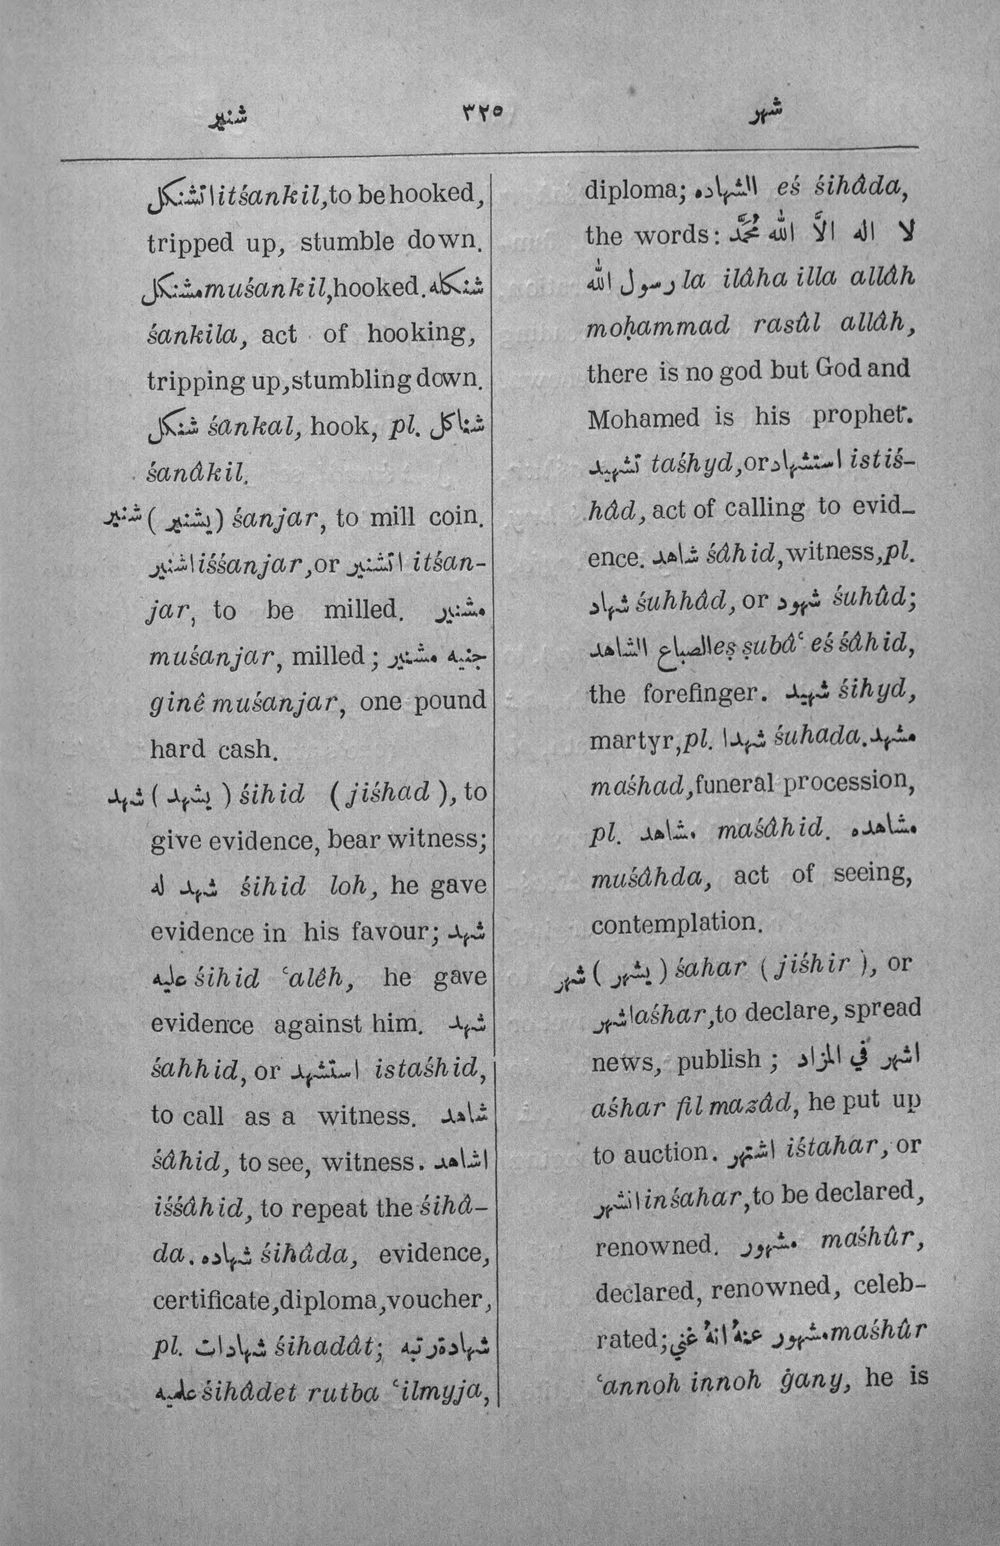 شنير ٣٢٥ شهر
اتشنكل itśankil, to be hooked,
tripped up, stumble down.
مشنكل muśankil, hooked. شنكله
śankila, act of hooking,
tripping up, stumbling down.
شنكل śankal, hook, pl. شناكل
śanâkil.
شنير (يشنير) śanjar, to mill coin.
اشنير iśśanjar, or اتشنير itśan-
jar, to be milled. مشنير
muśanjar, milled; جنيه مشنير
ginê muśanjar, one pound
hard cash.
شهد (يشهد) śihid (jiśhad), to
give evidence, bear witness;
شهد له śihid loh, he gave
evidence in his favour; شهد
عليه śihid ʿalêh, he gave
evidence against him. شهد
śahhid, or استشهد istaśhid,
to call as a witness. شاهد
śâhid, to see, witness. اشاهد
iśśâhid, to repeat the śihâ-
da. شهاده śihâda, evidence,
certificate, diploma, voucher,
pl. شهادات śihadât; شهادة رتبه
علميه śihâdet rutba ʿilmyja,
diploma; الشهاده eś śihâda,
the words: لا اله الاَّ الله مُحَمَّد
رسول الله la ilâha illa allâh
moḥammad rasûl allâh,
there is no god but God and
Mohamed is his prophet.
تشهيد taśhyd, or استشهاد istiś-
hâd, act of calling to evid-
ence. شاهد śâhid, witness, pl.
شهاد śuhhâd, or شهود śuhûd;
الصباع الشاهد eṣ ṣubâʿ eś śâhid,
the forefinger. شهيد śihyd,
martyr, pl. شهدا śuhada. مشهد
maśhad, funeral procession,
pl. مشاهد maśâhid. مشاهده
muśâhda, act of seeing,
contemplation.
شهر (يشهر) śahar (jiśhir), or
اشهر aśhar, to declare, spread
news, publish; اشهر في المزاد
aśhar fil mazâd, he put up
to auction. اشتهر iśtahar, or
انشهر inśahar, to be declared,
renowned. مشهور maśhûr,
declared, renowned, celeb-
rated; مشهور عنهُ انهُ غني maśhûr
ʿannoh innoh ġany, he is